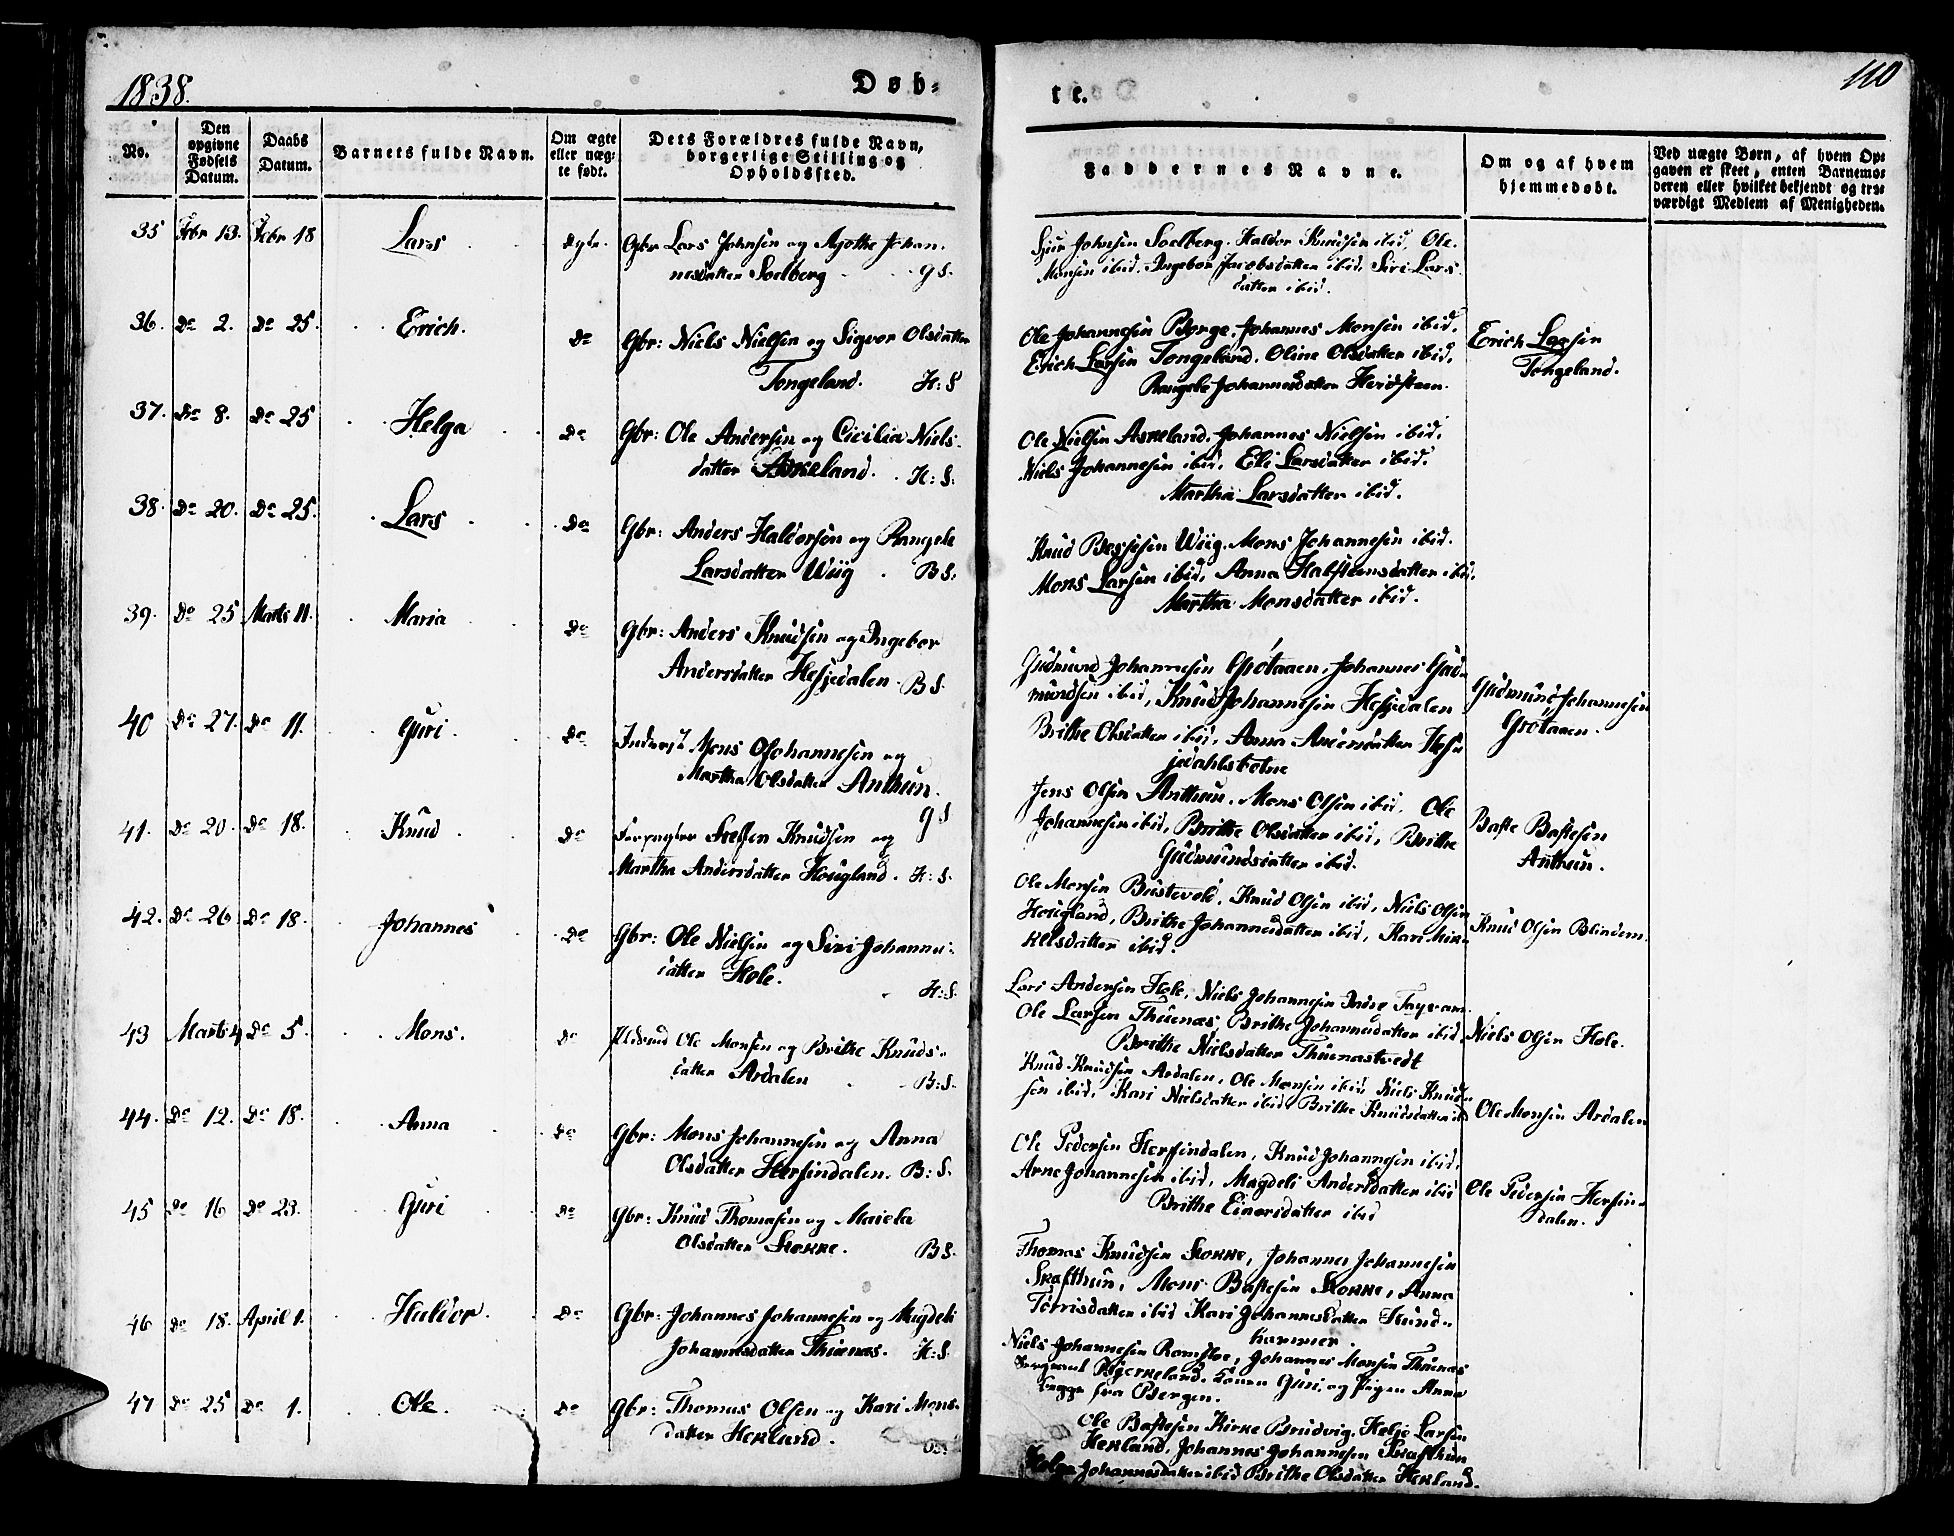 1838.
Døb-
No.
Den opgivne Fødsels Datum.
Daabs Datum.
Barnets fulde Navn.
Om ægte eller uæg- te født.
Dets Forældres fulde Navn, borgerlige Stilling og Opholdssted.
35 Febr 13. Febr 18 Lars Ægte. Gbr Lars Johnsen og Agothe Johan-
nesdatter Soelberg G S.
36. Do 2. Do 25. Erich. Do Gbr: Niels Nielsen og Sigvor Olsdatter
Tongeland. H: S
37. Do 8. Do 25 Helga Do Gbr: Ole Andersen og Cicilia Niels-
datter Askeland. H: S.
38. Do 20. Do 25. Lars Do Gbr: Anders Haldorsen og Rangele
Larsdatter Wiig B S.
39. Do 25 Marts 11. Maria Do Gbr: Anders Knudsen og Ingebor
Andersdatter Hesjedalen. B S.
40 Do 27. Do 11. Guri. Do Inderst Mons Johannesen og
Martha Olsdatter Anthun.
G S
41. Do 20. Do 18. Knud Do Steffen Knudsen og
Martha Andersdatter Hougland. H: S.
42. Do 26 Do 18. Johannes Do Gbr: Ole Nielsen og Siri Johannes-
datter Hole. H: S.
43 Marts 4 Do 5. Mons. Do Ole Monsen og Brithe Knuds-
datter Ardalen B: S.
44. Do 12. Do 18. Anna Do Gbr: Mons Johannesen og Anna
Olsdatter Hersindalen. B: S.
45 Do 16 Do 23. Guri Do Gbr: Knud Thomasen og Maiela
Olsdatter Stokke. B S.
46 Do 18. April 1. Haldor. Do Gbr: Johannes Johannesen og Magdeli
Johannesdatter Thuenæs. H: S.
47 Do 25 Do 1. Ole. Do Gbr: Thomas Olsen og Kari Mons-
datter Hekland.
te.
110
Faddernes Navne.
Om og af hvem hjemmedøbt.
Ved uægte Børn, af hvem Op- gaven er skeet, enten Barnemo- deren eller hvilket bekjendt og tro- værdigt Medlem af Menigheden.
Sjur Johnsen Soelberg. Haldor Knudsen ibid, Ole
Monsen ibid. Ingebor Jacobsdatter ibid, Siri Lars-
datter ibid.
Ole Johannesen Borge. Johannes Monsen ibid.
Erich Larsen Tongeland. Oline Olsdatter ibid.
Rangele Johannesdatter Hvidsteen.
Erich Larsen
Tongeland.
Ole Nielsen Askeland, Johannes Nielsen ibid.
Niels Johannesen ibid. Eli Larsdatter ibid.
Martha Larsdatter ibid.
Knud Wiig. Mons Johannesen ibid.
Mons Larsen ibid, Anna Halsteensdatter ibid.
Martha Monsdatter ibid.
Gudmund Johannesen Grötaaen, Johannes Gud-
mundsen ibid, Knud Johannesen Hesjedalen
Brithe Olsdatter ibid, Anna Andersdatter Hes-
jedahlstølne
Gudmund Johannesen
Grötaaen.
Jens Olsen Anthun. Mons Olsen ibid, Ole
Johannesen ibid, Brithe Olsdatter ibid, Brithe
Gudmundsdatter ibid.
Baste Bastesen
Anthun.
Ole Monsen Bustevold, Knud Olsen ibid, Niels Olsen
Hougland, Brithe Johannesdatter ibid, Kari Mik-
kelsdatter ibid.
Knud Olsen Blindem.
Lars Andersen Hole, Niels Johannesen Indre
Ole Larsen Thuenæs, Brithe Johannesdatter ibid.
Brithe Nielsdatter Thuenæstvedt
Niels Olsen Hole.
Knud Knudsen Ardalen, Ole Monsen ibid, Niels Knud-
sen ibid, Kari Nielsdatter ibid, Brithe Knudsdatter ibid
Ole Monsen Ardalen
Ole Pedersen Hersindalen, Knud Johannesen ibid,
Arne Johannesen ibid, Magdeli Andersdatter ibid
Brithe Einersdatter ibid
Ole Pedersen Hersin-
dalen.
Thomas Knudsen Stokke, Johannes Johannesen
Skafthun, Mons Bastesen Stokke, Anna
Torrisdatter ibid Kari Johannesdatter Hund-
hammer.
Niels Johannesen Romsloe, Johannes Monsen Thuenæs
Bjerkeland, Guri, og Pigen Anna
begge fra Bergen.
Ole Bastesen Kirke Brudvig, Helje Larsen
Hekland, Johannes Johannesen Skafthun
Helga Johannesdatter ibid Brithe Olsdatter Hekland.